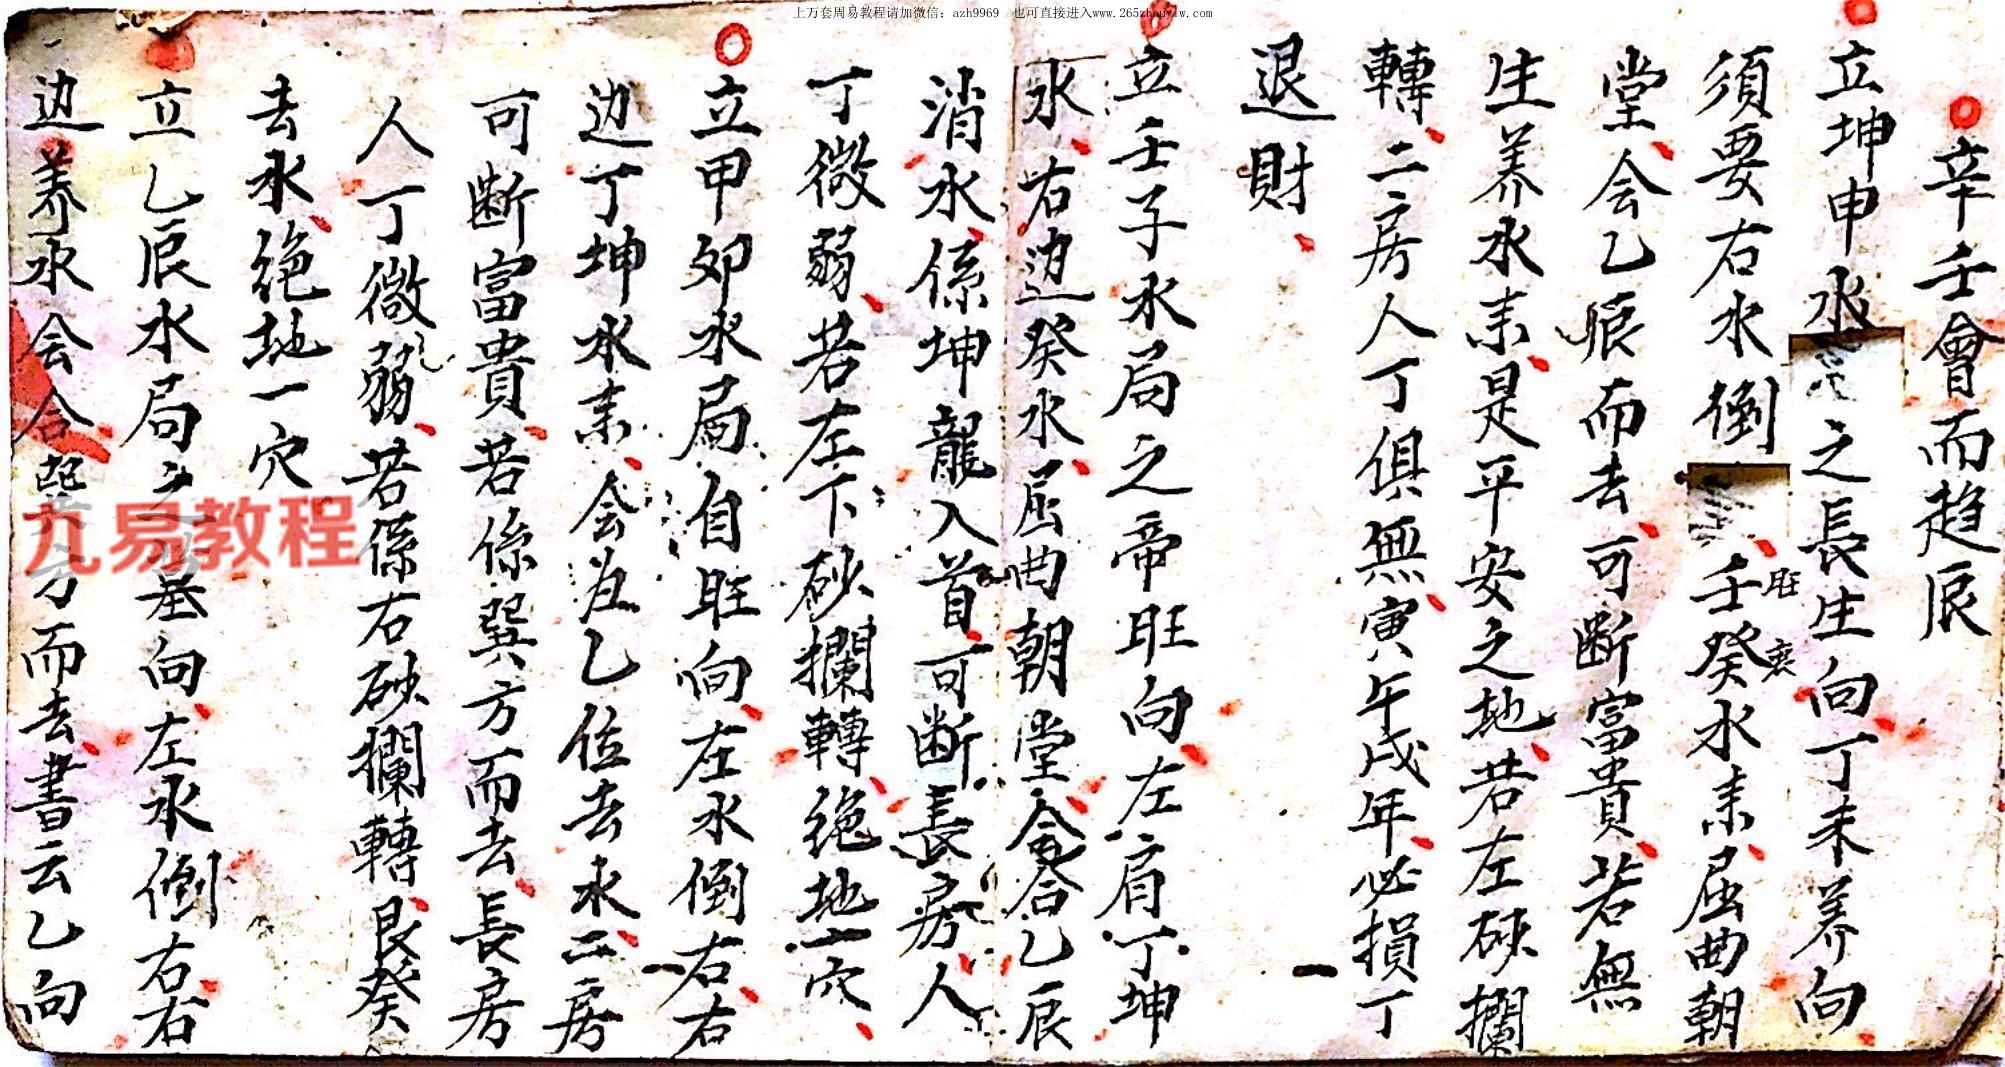 上万套周易教程请加微信：azh9969　也可直接进入www.265zhouyiw.com
辛壬會而趋辰
立坤申水之長生向丁未养向
須要右水倒壬癸水来屈曲朝
旺 衰
堂会乙辰而去可断富貴若無
生养水来是平安之地若左砂攔
轉二房人丁俱無寅午戌年必損丁
退財
立壬子水局之帝旺向左肩丁坤
水右边癸水屈曲朝堂会合乙辰
消水係坤龍入首可断長房人
丁微弱若左下砂攔轉绝地一穴
立甲卯水局自旺向左水倒右右
边丁坤水来会为乙位去水二房
可断富貴若係巽方而去長房
人丁微弱若係右砂攔轉艮癸
去水绝地一穴
立乙辰水局之墓向左水倒右右
边养水会合巽方而去書云乙向
九易教程